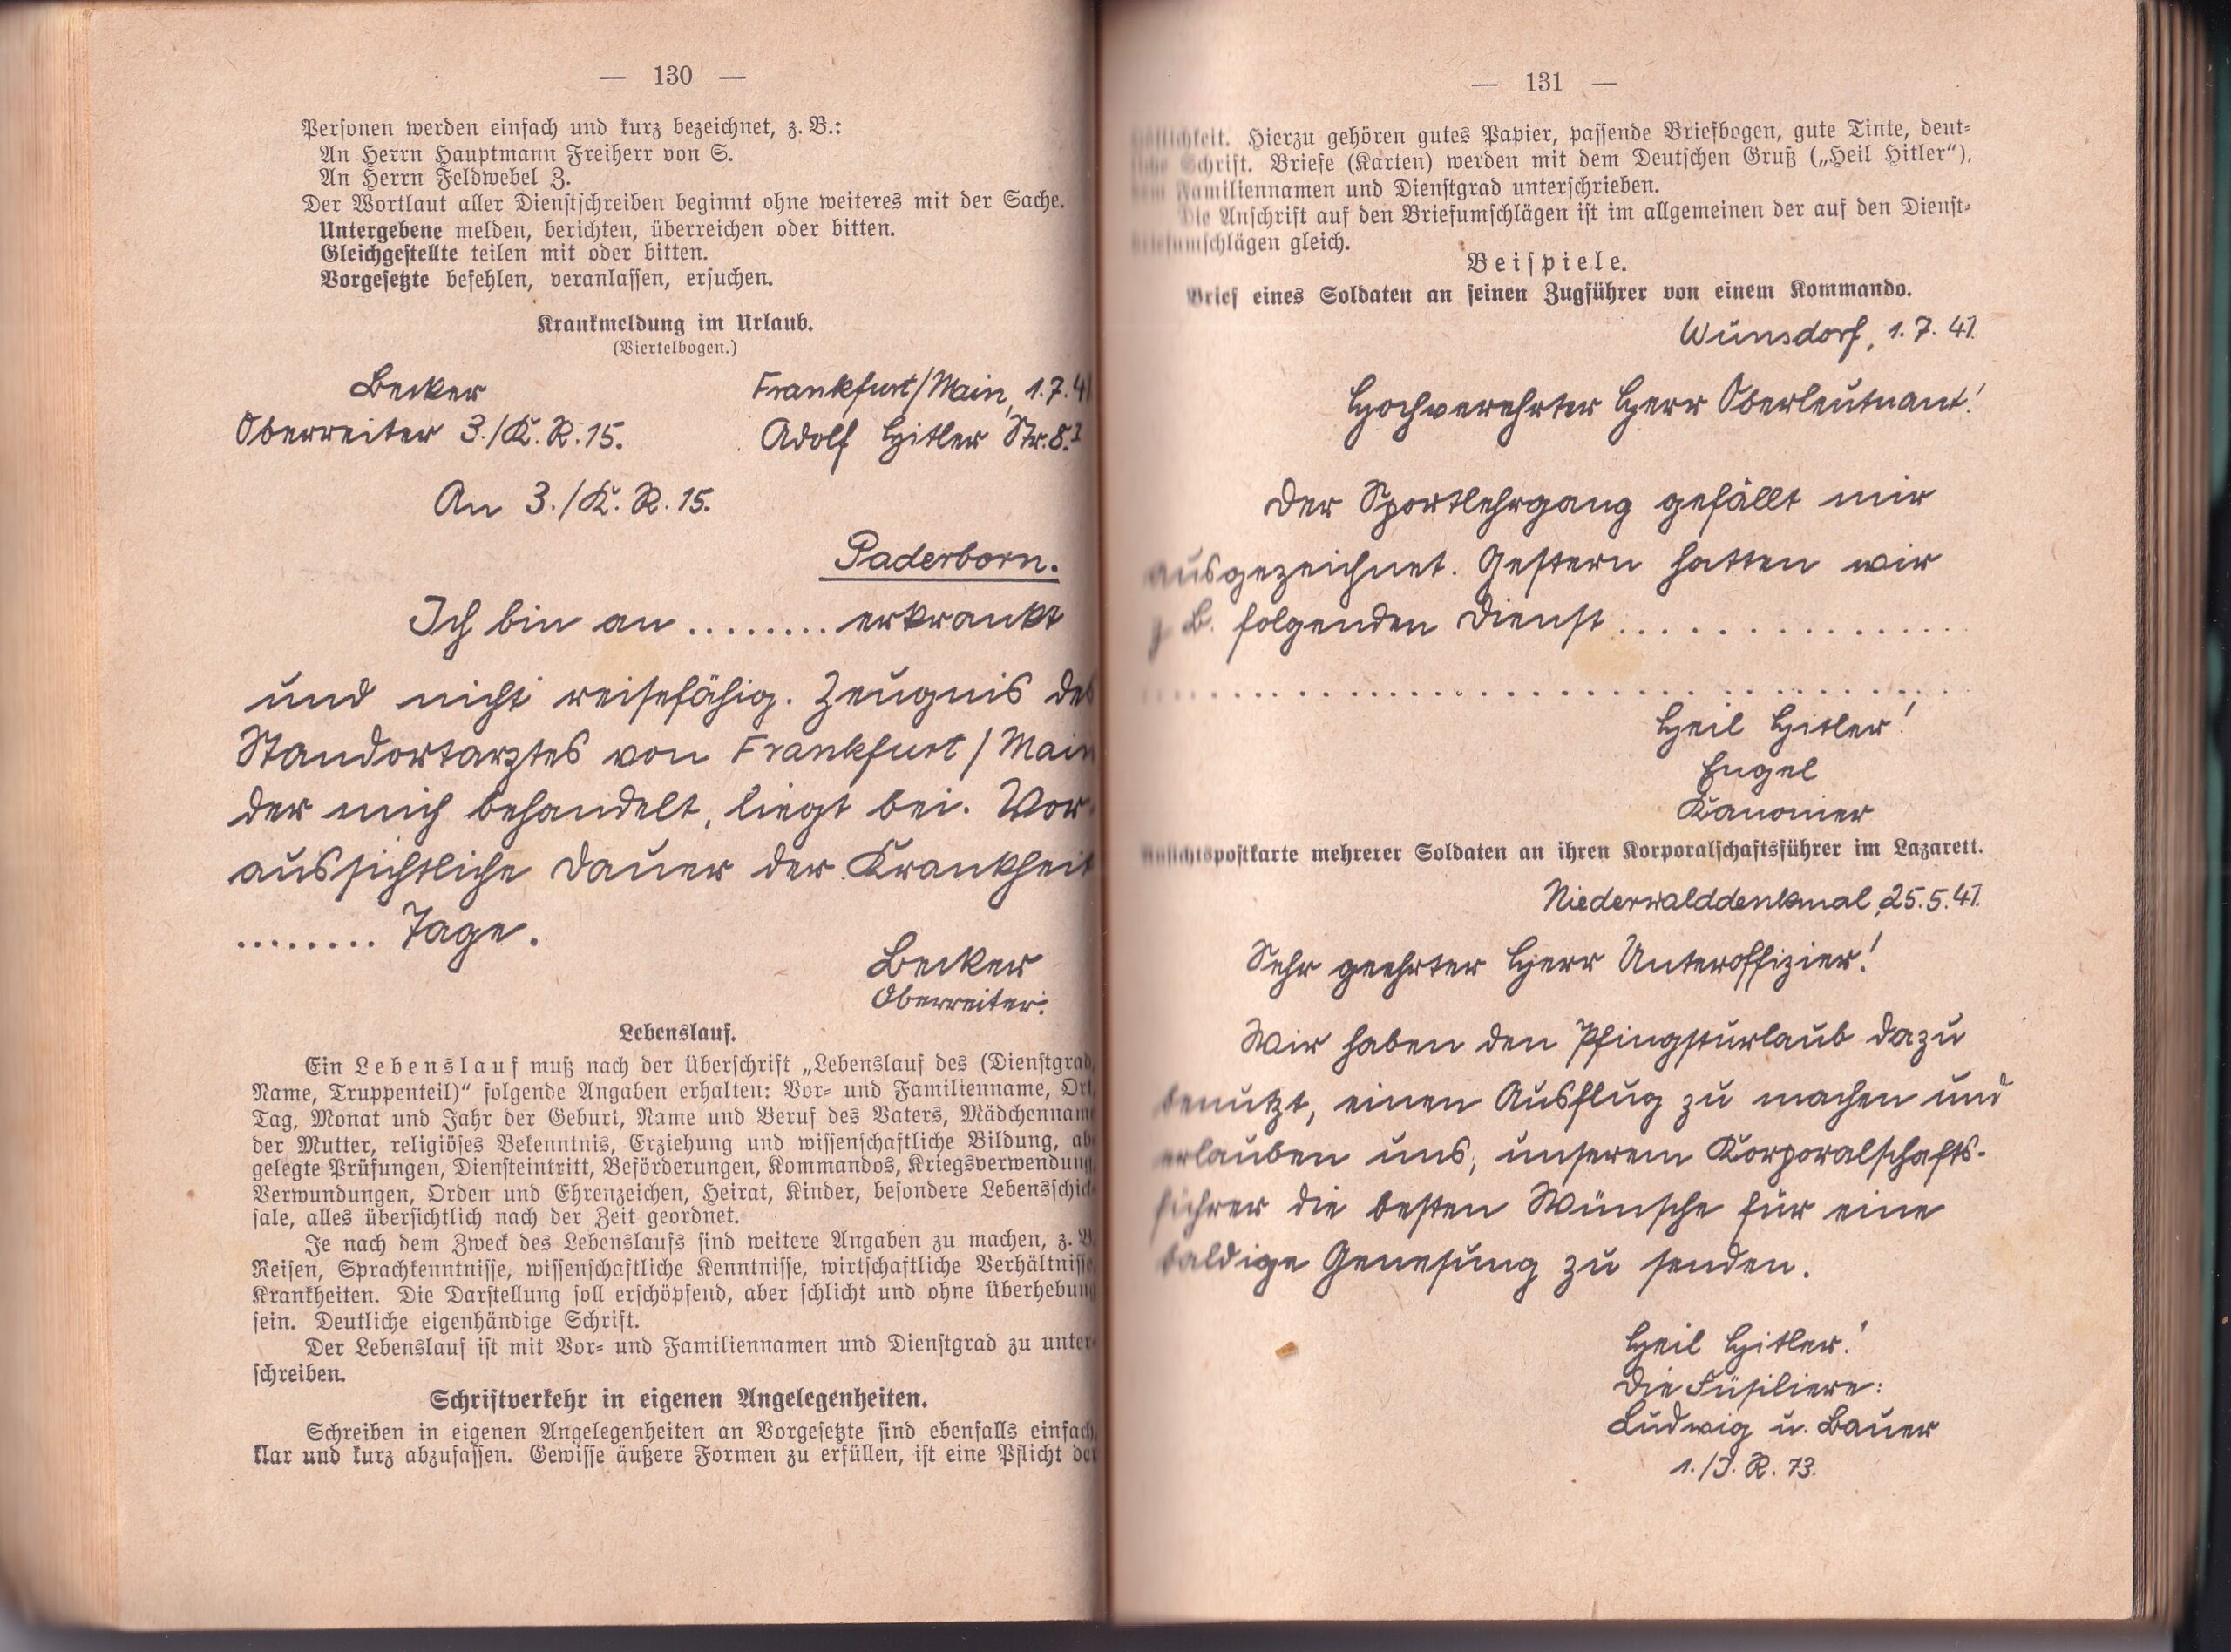 — 130 —
Personen werden einfach und kurz bezeichnet, z. B.:
An Herrn Hauptmann Freiherr von S.
An Herrn Feldwebel Z.
Der Wortlaut aller Dienstschreiben beginnt ohne weiteres mit der Sache.
Untergebene melden, berichten, überreichen oder bitten.
Gleichgestellte teilen mit oder bitten.
Vorgesetzte befehlen, veranlassen, ersuchen.
Krankmeldung im Urlaub.
(Viertelbogen.)
Becker Frankfurt/Main, 1.7.41
Oberreiter 3./K. R. 15. Adolf Hitler Str. 8.I
An 3./K. R. 15.
Paderborn.
Ich bin an ........ erkrankt
und nicht reisefähig. Zeugnis des
Standortarztes von Frankfurt/Main
der mich behandelt, liegt bei. Vor-
aussichtliche Dauer der Krankheit
........ Tage.
Becker
Oberreiter.
Lebenslauf.
Ein Lebenslauf muß nach der Überschrift „Lebenslauf des (Dienstgrad,
Name, Truppenteil)“ folgende Angaben erhalten: Vor- und Familienname, Ort,
Tag, Monat und Jahr der Geburt, Name und Beruf des Vaters, Mädchenname
der Mutter, religiöses Bekenntnis, Erziehung und wissenschaftliche Bildung, ab-
gelegte Prüfungen, Diensteintritt, Beförderungen, Kommandos, Kriegsverwendung,
Verwundungen, Orden und Ehrenzeichen, Heirat, Kinder, besondere Lebensschick-
sale, alles übersichtlich nach der Zeit geordnet.
Je nach dem Zweck des Lebenslaufs sind weitere Angaben zu machen, z. B.
Reisen, Sprachkenntnisse, wissenschaftliche Kenntnisse, wirtschaftliche Verhältnisse,
Krankheiten. Die Darstellung soll erschöpfend, aber schlicht und ohne Überhebung
sein. Deutliche eigenhändige Schrift.
Der Lebenslauf ist mit Vor- und Familiennamen und Dienstgrad zu unter-
schreiben.
Schriftverkehr in eigenen Angelegenheiten.
Schreiben in eigenen Angelegenheiten an Vorgesetzte sind ebenfalls einfach,
klar und kurz abzufassen. Gewisse äußere Formen zu erfüllen, ist eine Pflicht der
— 131 —
Höflichkeit. Hierzu gehören gutes Papier, passende Briefbogen, gute Tinte, deut-
liche Schrift. Briefe (Karten) werden mit dem Deutschen Gruß („Heil Hitler“),
dem Familiennamen und Dienstgrad unterschrieben.
Die Anschrift auf den Briefumschlägen ist im allgemeinen der auf den Dienst-
briefumschlägen gleich.
Beispiele.
Brief eines Soldaten an seinen Zugführer von einem Kommando.
Wünsdorf, 1. 7. 41.
Hochverehrter Herr Oberleutnant!
Der Sportlehrgang gefällt mir
ausgezeichnet. Gestern hatten wir
z. B. folgenden Dienst..............
..............................
Heil Hitler!
Engel
Kanonier
Ansichtspostkarte mehrerer Soldaten an ihren Korporalschaftsführer im Lazarett.
Niederwalddenkmal, 25. 5. 41.
Sehr geehrter Herr Unteroffizier!
Wir haben den Pfingsturlaub dazu
benutzt, einen Ausflug zu machen und
erlauben uns, unserem Korporalschafts-
führer die besten Wünsche für eine
baldige Genesung zu senden.
Heil Hitler!
Die Füsiliere:
Ludwig u. Bauer
1./J. R. 73.